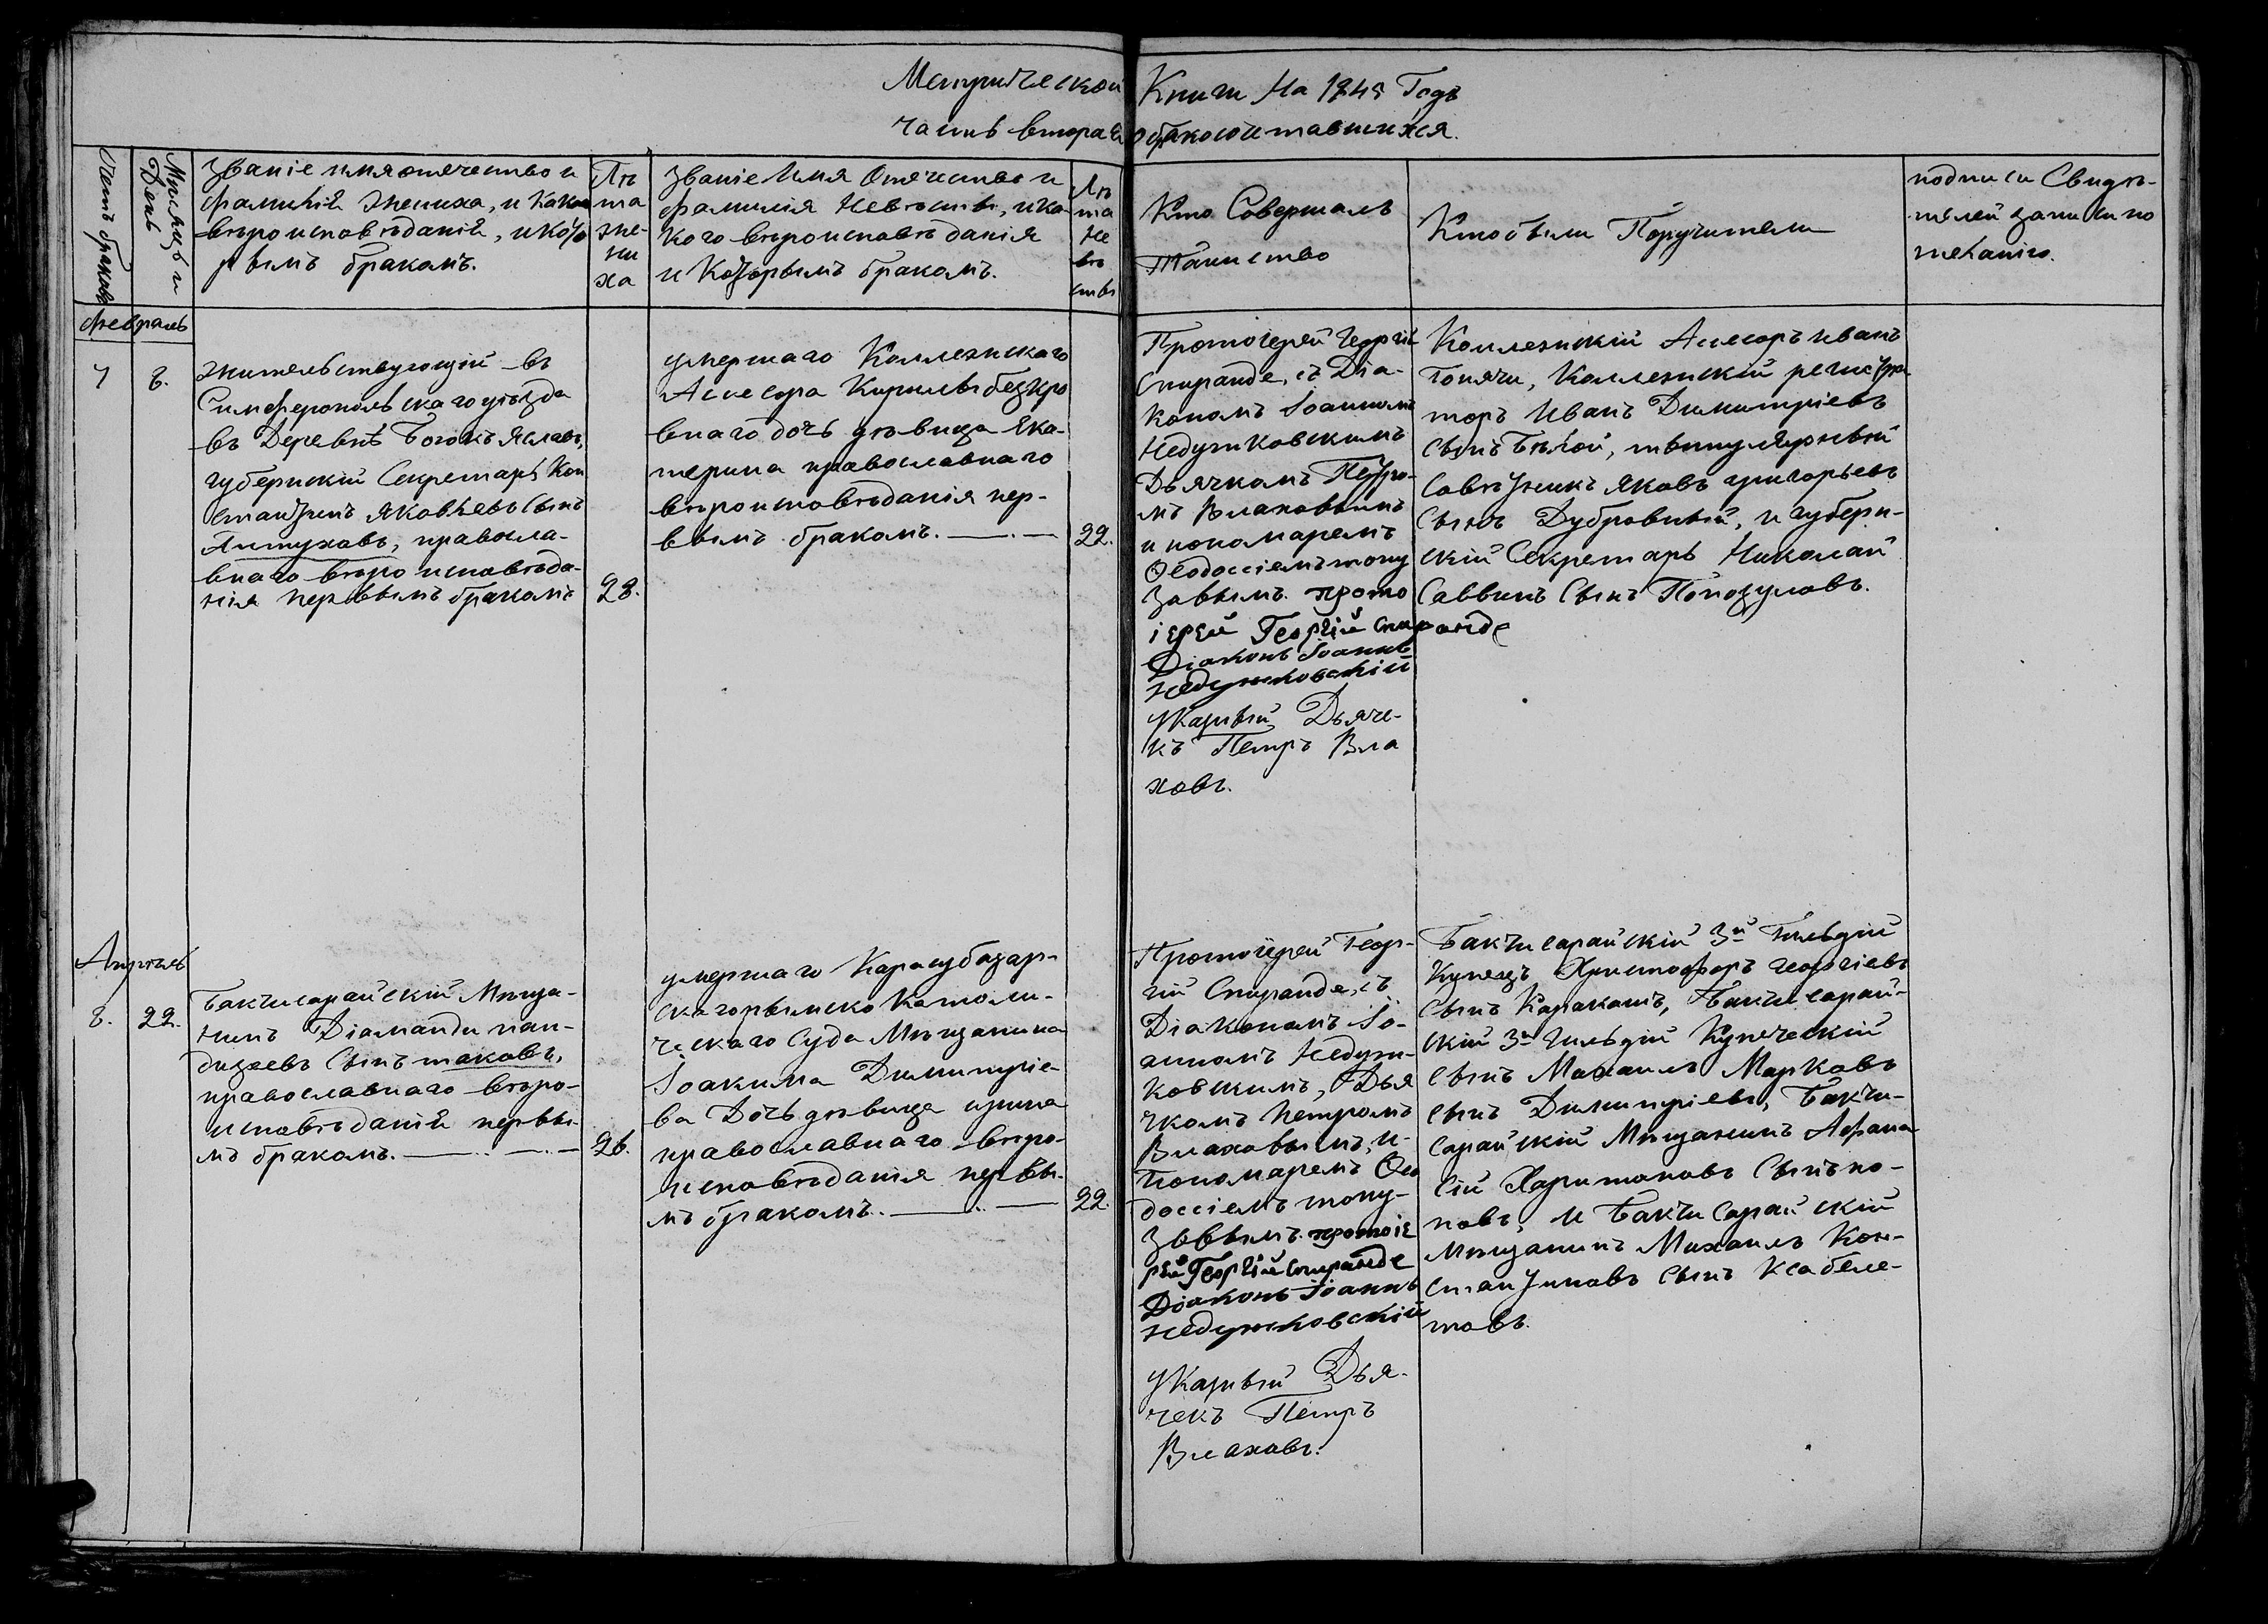 Метрической Книги На 1845 Годъ
часть вторая о бракосочетавшихся.
Счетъ браковъ
Мѣсяцъ и
День
Званіе имя отечество и
фамилій жениха, и какого
вѣроисповѣданій, и кото
рымъ бракомъ.
Лѣ
та
же-
ни
ха
Званіе Имя Отечество и
фамилія Невѣсты, и ка-
кого вѣроисповѣданія
и Которымъ бракомъ.
Лѣ
та
не
вѣ
сты
Кто Совершалъ
Таинство
Кто были Поручители
подписи Свидѣ-
телей записи по
желанію.
Февраль
7
8.
жительствующій въ
Симферопольскаго уѣзда
въ Деревнѣ
губернскій Секретарь Кон
стантинъ Яковлевъ Сынъ
православ
внаго вѣроисповѣда-
нія первымъ бракомъ
28.
умершаго Коллежскаго
Ассесора Кирилы Безкро
внаго дочь дѣвица Ека-
терина православнаго
вѣроисповѣданія пер-
вымъ бракомъ.
22.
Протоіерей Георгій
Спиранде, съ Діа-
кономъ Іоанномъ
Недужковскимъ
Дьячкомъ Петро-
мъ Влаховымъ
и пономаремъ
Ѳеодосіемъ топу
зовымъ. прото
іерей Георгій Спиранде
Діаконъ Іоаннъ
Недужковскій
Указный Дьяче-
къ Петръ Вла
ховъ.
Коллежскій Ассесоръ Иванъ
Коллежскій регистра
торъ Иванъ Димитріевъ
сынъ Бѣлой, титулярный
Совѣтникъ Яковъ григорьевъ
Сынъ Дубровный, и губерн-
скій Секретарь Николай
Саввинъ Сынъ Попозуловъ.
Апрѣль
8.
22.
Бакчисарайскій Мѣща-
нинъ Діаманди пан-
дазіевъ Сынъ таковъ,
православнаго вѣро-
исповѣданій первы-
мъ бракомъ.
26.
умершаго Карасубазар-
скаго римско Католи-
ческаго Суда Мѣщанина
Іоакима Димитріе-
ва Дочь дѣвица ирина
православнаго вѣро-
исповѣданія первы-
мъ бракомъ.
22.
Протоіерей Геор-
гій Спиранде, съ
Діакономъ Іо-
анномъ Недуж-
ковскимъ, Дья
чкомъ Петромъ
Влаховымъ, и
Пономаремъ Ѳео
досіемъ топу-
зовымъ. протоіе
рей Георгій Спиранде
Діаконъ Іоаннъ
Недужковскій
Указный Дья-
чекъ Петръ
Влаховъ.
Бакчисарайскій 3й Гильдій
Купецъ Христофоръ Георгіевъ
Сынъ Каракашъ, Бакчисарай-
скій 3й Гильдій Купеческій
сынъ Михаилъ Марковъ
сынъ Димитріевъ, Бакчи-
сарайскій Мѣщанинъ Афана
сій Харитоновъ Сынъ по-
повъ, и Бакчисарайскій
Мѣщанинъ Михаилъ Кон-
стантиновъ Сынъ Ксабеле-
товъ.